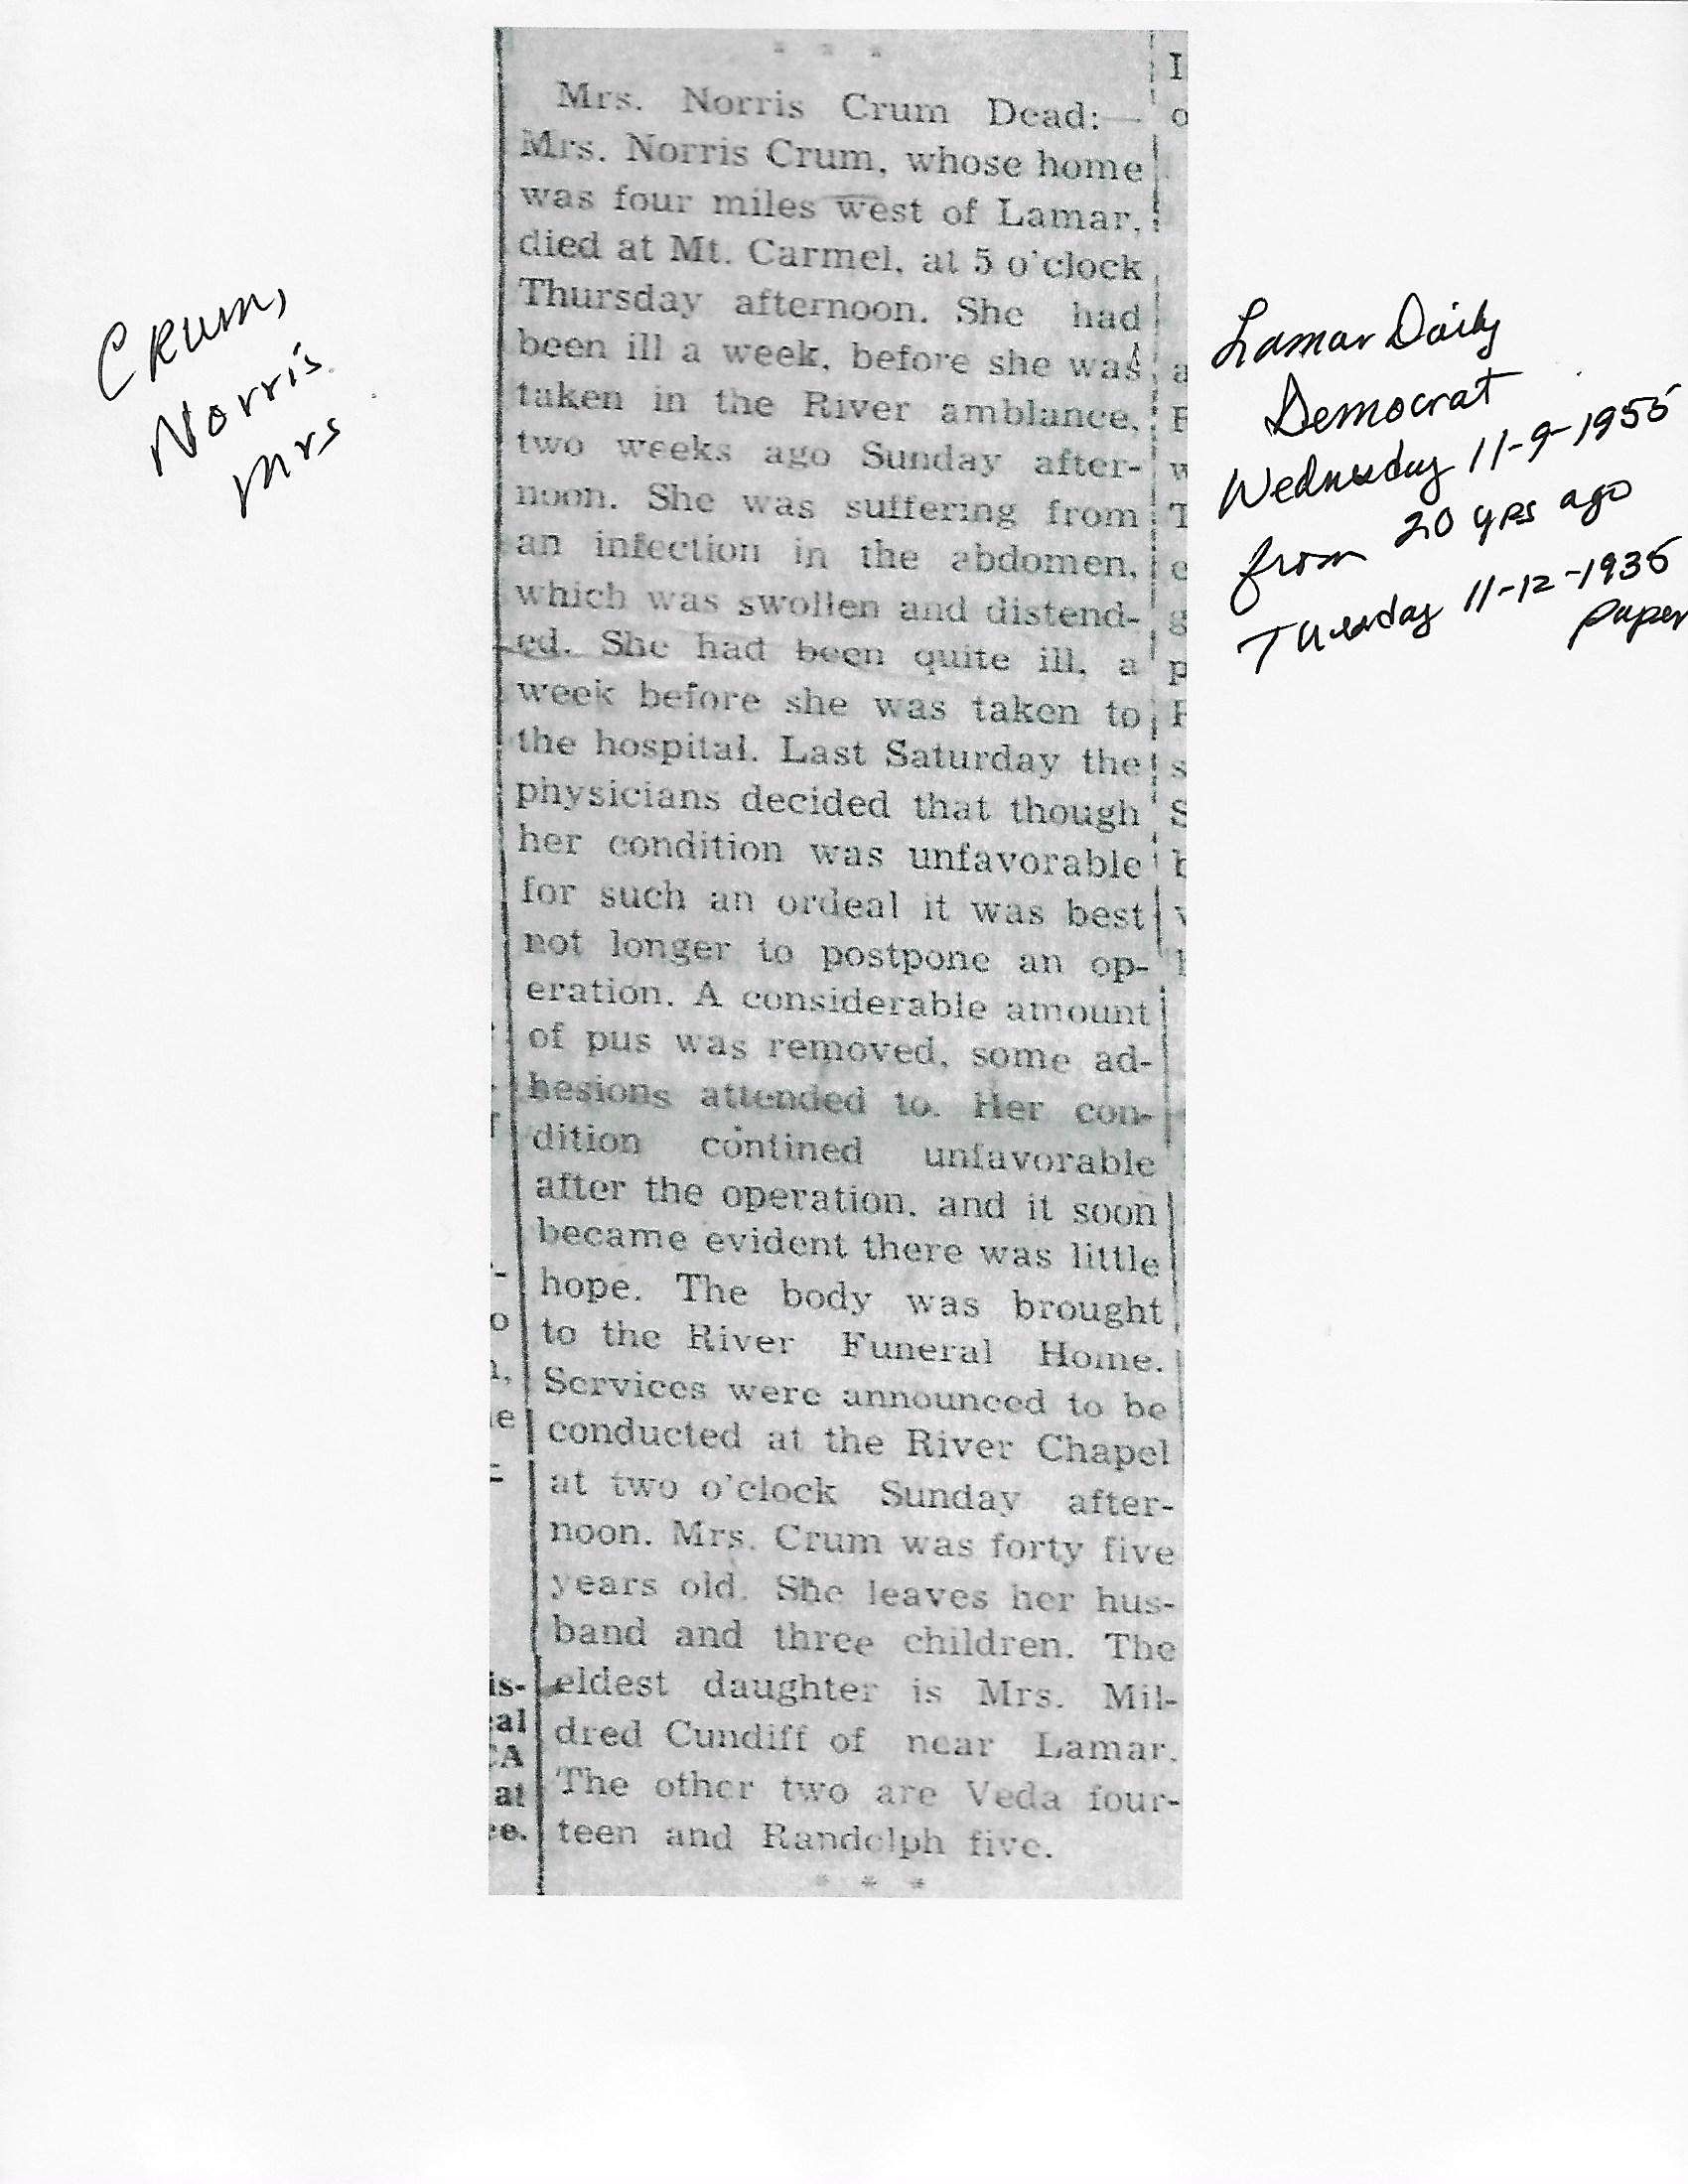 * * *
Mrs. Norris Crum Dead:—
Mrs. Norris Crum, whose home
was four miles west of Lamar,
died at Mt. Carmel, at 5 o'clock
Thursday afternoon. She had
been ill a week, before she was
taken in the River amblance,
two weeks ago Sunday after-
noon. She was suffering from
an infection in the abdomen,
which was swollen and distend-
ed. She had been quite ill, a
week before she was taken to
the hospital. Last Saturday the
physicians decided that though
her condition was unfavorable
for such an ordeal it was best
not longer to postpone an op-
eration. A considerable amount
of pus was removed, some ad-
hesions attended to. Her con-
dition contined unfavorable
after the operation, and it soon
became evident there was little
hope. The body was brought
to the River Funeral Home.
Services were announced to be
conducted at the River Chapel
at two o'clock Sunday after-
noon. Mrs. Crum was forty five
years old. She leaves her hus-
band and three children. The
eldest daughter is Mrs. Mil-
dred Cundiff of near Lamar.
The other two are Veda four-
teen and Randolph five.
* * *
Crum,
Norris
Mrs
Lamar Daily
Democrat
Wednesday 11-9-1955
from 20 yrs ago
Tuesday 11-12-1935
paper
is-
eal
CA
at
ee.